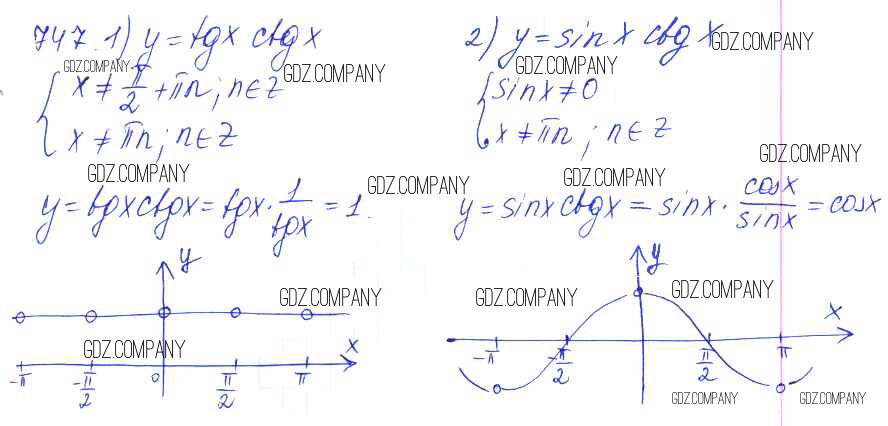 747. 1) y = tgx ctgx
GDZ.COMPANY
{ x ≠ π/2 + πn; n∈Z
GDZ.COMPANY
x ≠ πn; n∈Z
GDZ.COMPANY
y = tgxctgx = tgx · 1/tgx = 1.
GDZ.COMPANY
y
GDZ.COMPANY
x
GDZ.COMPANY
-π -π/2 0 π/2 π
2) y = sinx ctgx
GDZ.COMPANY
GDZ.COMPANY
{ sinx ≠ 0
x ≠ πn; n∈Z
GDZ.COMPANY
GDZ.COMPANY
y = sinx ctgx = sinx · cosx/sinx = cosx
y
GDZ.COMPANY
GDZ.COMPANY
x
-π -π/2 π/2 π
GDZ.COMPANY
GDZ.COMPANY